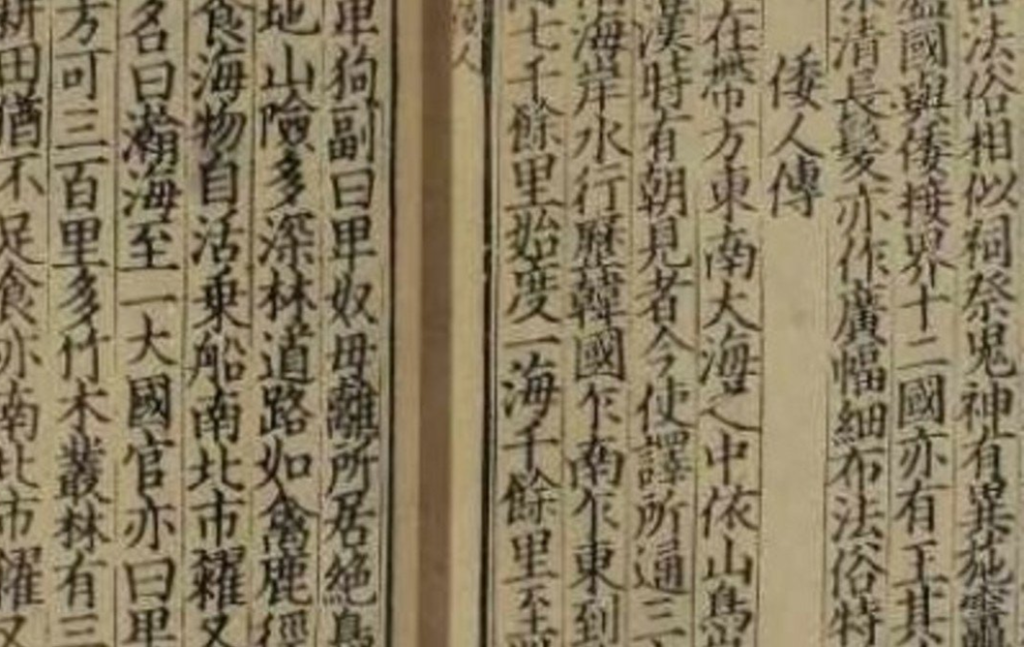 法俗相似祠祭鬼神有異施竈
盧國與倭接界十二國亦有王其
清長髮亦作廣幅細布法俗特
倭人傳
在帶方東南大海之中依山島
漢時有朝見者今使譯所通三
海岸水行歷韓國乍南乍東到
七千餘里始度一海千餘里至
人
卑狗副曰卑奴母離所居絕島
地山險多深林道路如禽鹿徑
食海物自活乗船南北市糴又
名曰瀚海至一大國官亦曰卑
方可三百里多竹木叢林有三
耕田猶不足食亦南北市糴又